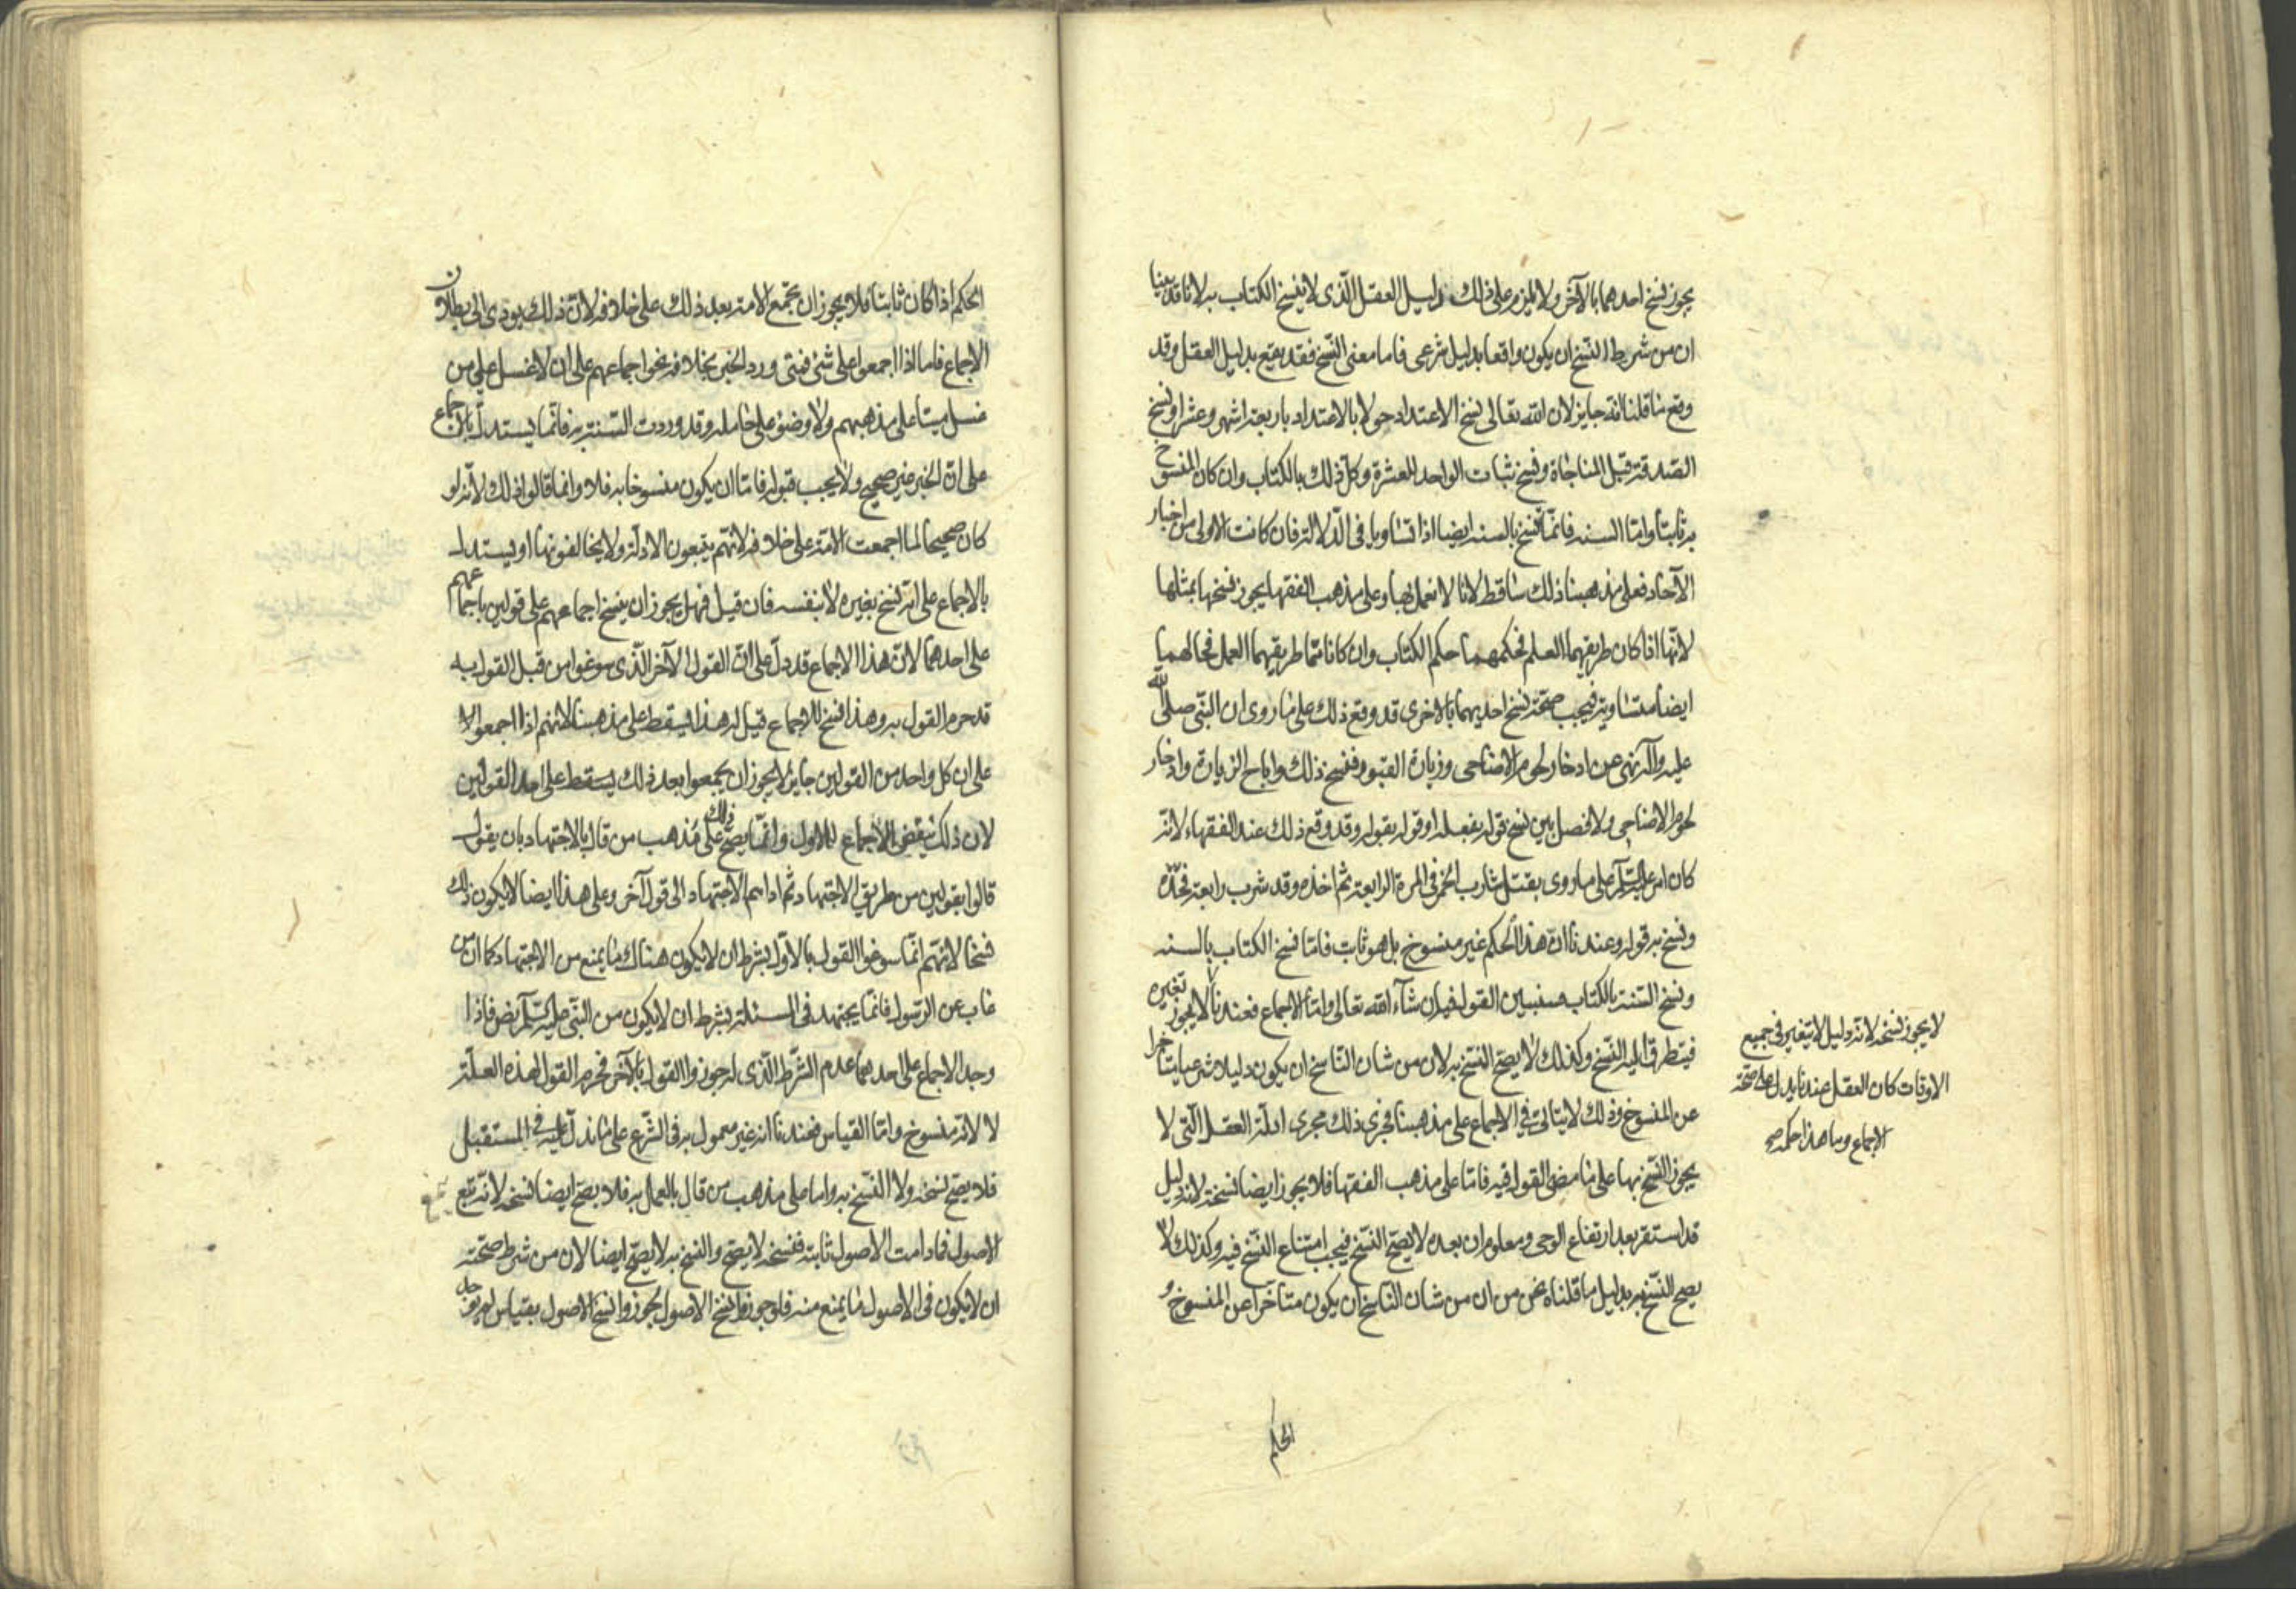 يجوز نسخ احدهما بالآخر ولا يلزم على ذلك دليل العقل الذى لا ينسخ الكتاب به لانا قد بينا
ان من شرط النسخ ان يكون واقعا بدليل شرعى فاما معنى النسخ فقد يقع بدليل العقل وقد
وقع ما قلنا انه جايز لان الله تعالى نسخ الاعتداد حولا بالاعتداد باربعة اشهر وعشرا ونسخ
الصدقة قبل المناجاة ونسخ ثبات الواحد للعشرة وكل ذلك بالكتاب وان كان المنسوخ
به ثابتا واما السنه فانما تنسخ بالسنه ايضا اذا تساويا فى الدلالة فان كانت الاولى من اخبار
الآحاد فعلى مذهبنا ذلك ساقط لانا لا نعمل بها وعلى مذهب الفقها يجوز نسخها بمثلها
لانها اذا كان طريقهما العلم فحكمهما حكم الكتاب وان كانا مما طريقهما العمل فحالهما
ايضا متساوية فيجب صحة نسخ احديهما بالاخرى قد وقع ذلك على ما روى ان النبى صلى الله
عليه وآله نهى عن ادخار لحوم الاضاحى وزيارة القبور فنسخ ذلك واباح الزيارة وادخار
لحوم الاضاحى ولا فصل بين نسخ قوله بفعله او قوله بقوله وقد وقع ذلك عند الفقهاء لانه
كان امر عليه السلم على ما روى بقتل شارب الخمر فى المرة الرابعة ثم اخذه وقد شرب رابعة فحده
ونسخ به قوله وعندنا ان هذا الحكم غير منسوخ بل هو ثابت فاما نسخ الكتاب بالسنه
ونسخ السنة بالكتاب فسنبين القول فيه ان شآء الله تعالى واما الاجماع فعندنا لا يجوز تغيره
فيتطرق اليه النسخ وكذلك لا يصح النسخ به لان من شان الناسخ ان يكون دليلا شرعيا متاخرا
عن المنسوخ وذلك لا يتاتى فى الاجماع على مذهبنا فجرى ذلك مجرى ادلة العقل التى لا
يجوز النسخ بها على ما مضى القول فيه فاما على مذهب الفقها فلا يجوز ايضا نسخه لانه دليل
قد استقر بعد ارتفاع الوحى ومعلوم ان بعده لا يصح النسخ فيجب امتناع النسخ فيه وكذلك لا
يصح النسخ به بدليل ما قلناه نحن من ان من شان الناسخ ان يكون متاخرا عن المنسوخ و
لا يجوز نسخه لانه دليل لا يتغير فى جميع
الاوقات كان العقل عندنا يدل على صحة
الاجماع وما هذا حكمه صح
الحكم
الحكم اذا كان ثابتا فلا يجوز ان يجمع الامة بعد ذلك على خلافه لان ذلك يودى الى بطلان
الاجماع فاما اذا اجمعوا على شئ فمتى ورد الخبر بخلافه نحو اجماعهم على ان لا غسل على من
غسل ميتا على مذهبهم ولا وضوء على حامله وقد وردت السنة به فانما يستدل بالاجماع
على ان الخبر غير صحيح ولا يجب قبوله فاما ان يكون منسوخا به فلا وانما قالوا ذلك لانه لو
كان صحيحا لما اجمعت الامة على خلافه لانهم يتبعون الادلة ولا يخالفونها او يستدل
بالاجماع على انه نسخ بغيره لا بنفسه فان قيل فهل يجوز ان ينسخ اجماعهم على قولين باجماعهم
على احدهما لان هذا الاجماع قد دل على ان القول الآخر الذى سوغوا من قبل القول به
قد حرم القول به وهذا نسخ للاجماع قيل له هذا يسقط على مذهبنا لانهم اذا اجمعوا
على ان كل واحد من القولين جايز لا يجوز ان يجمعوا بعد ذلك يسقط على احد القولين
لان ذلك ينقض الاجماع الاول وانما يصح ذلك على مذهب من قال بالاجتهاد بان يقول
قالوا بقولين من طريق الاجتهاد ثم اداهم الاجتهاد الى قول آخر وعلى هذا ايضا لا يكون ذلك
نسخا لانهم انما سوغوا القول بالاول بشرط ان لا يكون هناك ما يمنع من الاجتهاد كما ان من
غاب عن الرسول فانما يجتهد فى المسئلة بشرط ان لا يكون من النبى عليه السلم نص فاذا
وجد الاجماع على احدهما عدم الشرط الذى له جوزوا القول بالآخر فحرم القول لهذه العلة
لا لانه منسوخ واما القياس فعندنا انه غير معمول به فى الشرع على ما ندل عليه فى المستقبل
فلا يصح نسخه ولا النسخ به واما على مذهب من قال بالعمل به فلا يصح ايضا نسخه لانه تبع
الاصول فما دامت الاصول ثابته فنسخه لا يصح والنسخ به لا يصح ايضا لان من شرط صحته
ان لا يكون فى الاصول ما يمنع منه فلو جوزوا نسخ الاصول لجوزوا نسخ الاصول بقياس